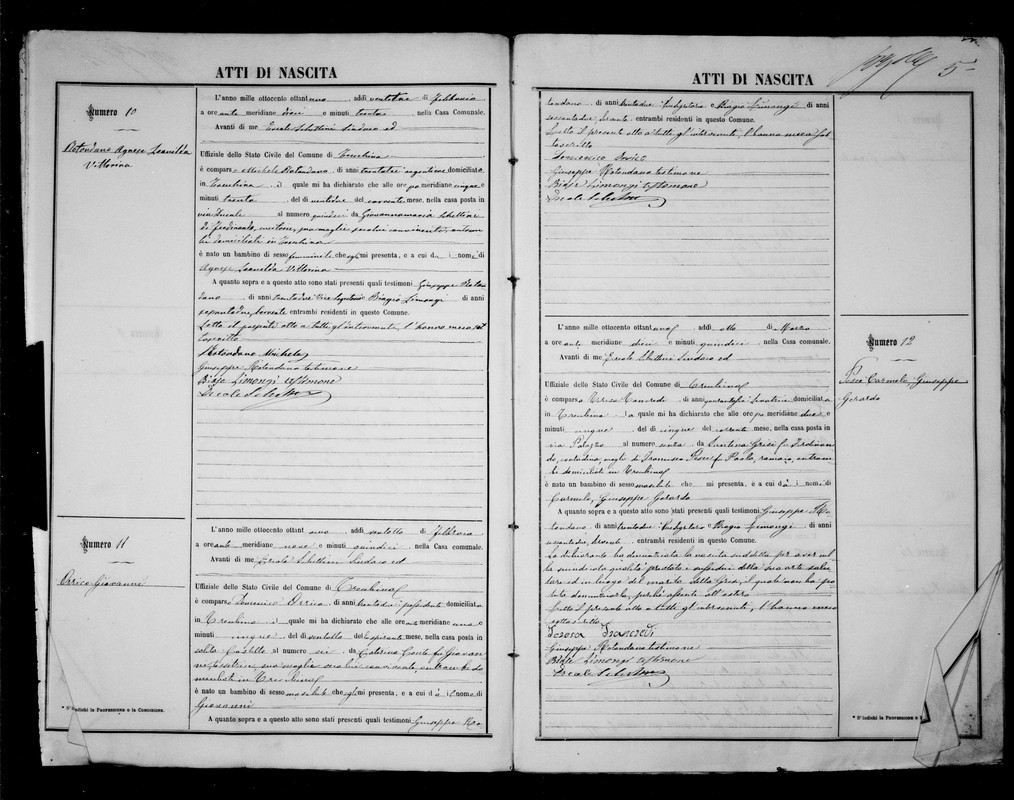 ATTI DI NASCITA
Numero 10
Rotondano Agnese Leanelda
Vittorina
L'anno mille ottocento ottantuno, addì ventitre di Febbraio
a ore ante meridiane dieci e minuti trenta, nella Casa Comunale.
Avanti di me Ercole Schettini Sindaco ed
Uffiziale dello Stato Civile del Comune di Trecchina
è comparso Michele Rotondano, di anni trentatre, domiciliato
in Trecchina il quale mi ha dichiarato che alle ore po meridiane cinque e
minuti trenta, del dì ventidue del corrente mese, nella casa posta in
via Ducale al numero quindici da Giovannamaria Schettini
di Ferdinando, sua moglie seco lui convivente, entram
bi domiciliati in Trecchina
è nato un bambino di sesso femminile che egli mi presenta, e a cui dà i nomi di
Agnese Leanelda Vittorina
A quanto sopra e a questo atto sono stati presenti quali testimoni Giuseppe Roton
dano, di anni trentadue e Biagio Limongi, di anni
sessantadue, entrambi residenti in questo Comune.
Letto il presente atto a tutti gl'intervenuti, l'hanno meco sot
toscritto
Rotondano Michele
Giuseppe Rotondano testimone
Biase Limongi testimone
Ercole Schettini
Numero 11
Orrico Giovanni
L'anno mille ottocento ottantuno, addì ventotto di Febbraio
a ore ante meridiane nove e minuti quindici, nella Casa Comunale.
Avanti di me Ercole Schettini Sindaco ed
Uffiziale dello Stato Civile del Comune di Trecchina
è comparso Domenico Orrico, di anni trentadue possidente domiciliato
in Trecchina il quale mi ha dichiarato che alle ore ante meridiane una e
minuti cinque, del dì ventotto del spirante mese, nella casa posta in
salita Castello al numero sei da Caterina Conte fu Giovan
ni, sua moglie seco lui convivente, entrambi do
miciliati in Trecchina
è nato un bambino di sesso maschile che egli mi presenta, e a cui dà il nome di
Giovanni
A quanto sopra e a questo atto sono stati presenti quali testimoni Giuseppe Ro
* S'indichi la Professione o la Condizione.
5
ATTI DI NASCITA
tondano, di anni trentadue e Biagio Limongi, di anni
sessantadue, entrambi residenti in questo Comune.
Letto il presente atto a tutti gl'intervenuti, l'hanno meco sot
toscritto
Domenico Orrico
Giuseppe Rotondano testimone
Biase Limongi testimone
Ercole Schettini
Numero 12
Pesce Carmelo, Giuseppe
Gerardo
L'anno mille ottocento ottantuno, addì otto di Marzo
a ore ante meridiane dieci e minuti quindici, nella Casa comunale.
Avanti di me Ercole Schettini Sindaco ed
Uffiziale dello Stato Civile del Comune di Trecchina
è comparsa Tancredi, di anni levatrice domiciliata
in Trecchina la quale mi ha dichiarato che alle ore po meridiane due e
minuti cinque, del dì cinque del corrente mese, nella casa posta in
via Palazzo al numero senza da Santina Grisi fu Ferdinan
do, contadina, moglie di Francesco Pesce fu Paolo, ramaio, entram
bi domiciliati in Trecchina
è nato un bambino di sesso maschile che mi presenta, e a cui dà i nomi di
Carmelo, Giuseppe Gerardo
A quanto sopra e a questo atto sono stati presenti quali testimoni Giuseppe Ro
tondano, di anni trentadue e Biagio Limongi, di anni
sessantadue, entrambi residenti in questo Comune.
La dichiarante ha denunciata la nascita suddetta per aver nel
la sua qualità prestato i sussidii della sua arte salu
tare ed in luogo del marito della Grisi, il quale non ha po
tuto denunciarla, perchè assente all'estero
Letto il presente atto a tutti gl'intervenuti, l'hanno meco
sottoscritto
Teresa Trancredi
Giuseppe Rotondano testimone
Biase Limongi testimone
Ercole Schettini
* S'indichi la Professione o